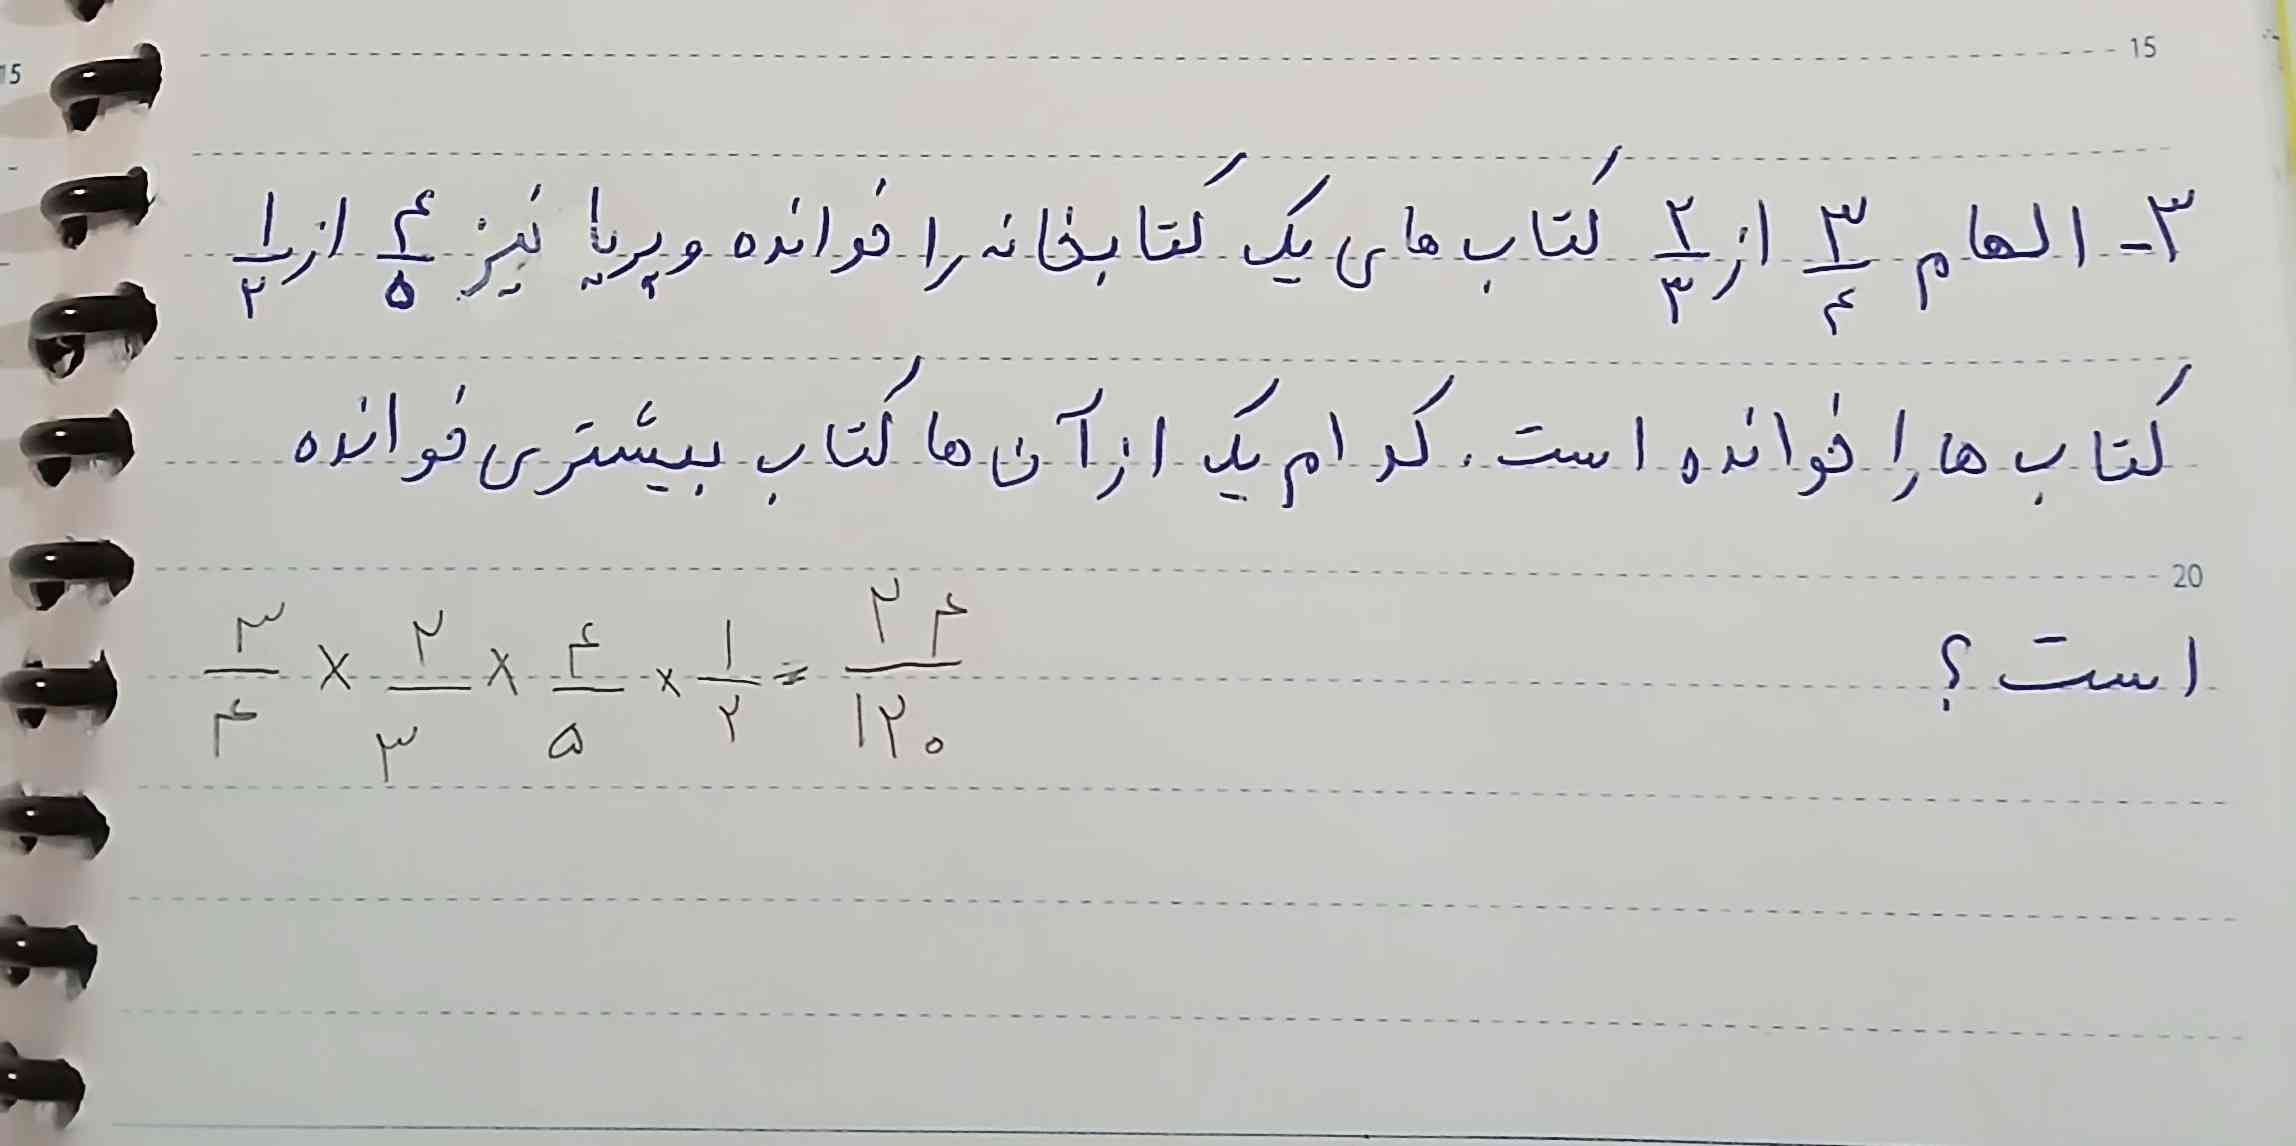 15
15
۳- الهام ۳/۴ از ۲/۳ کتاب های یک کتابخانه را خوانده و پریا نیز ۴/۵ از ۱/۲
کتاب ها را خوانده است. کدام یک از آن ها کتاب بیشتری خوانده
20
است؟
۳/۴ × ۲/۳ × ۴/۵ × ۱/۲ = ۲۴/۱۲۰